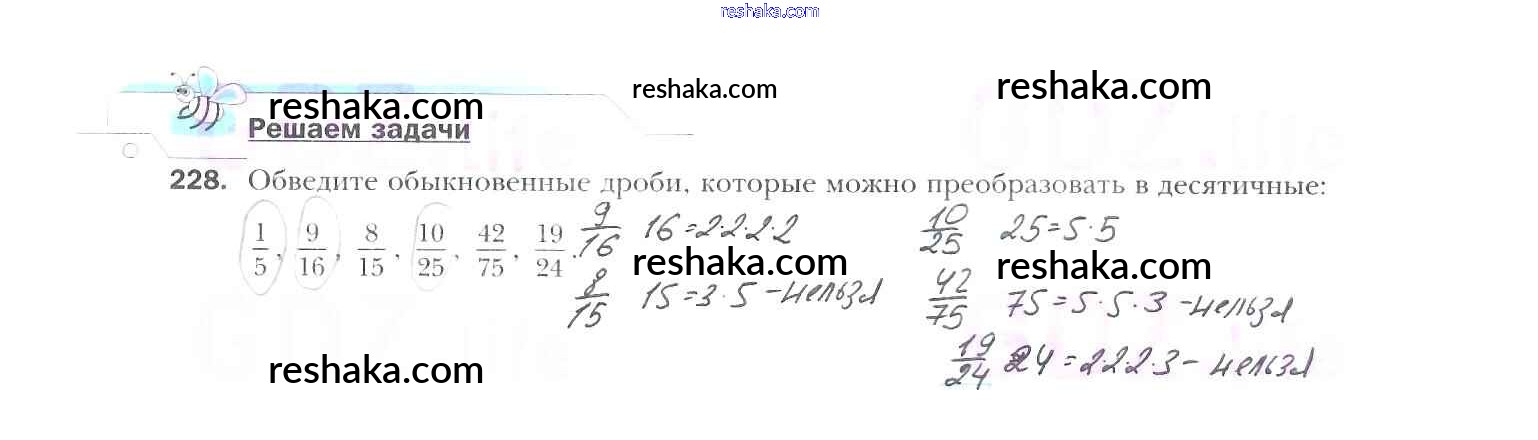 reshaka.com
reshaka.com reshaka.com reshaka.com
Решаем задачи
228. Обведите обыкновенные дроби, которые можно преобразовать в десятичные:
1/5, 9/16, 8/15, 10/25, 42/75, 19/24.
9/16 16=2·2·2·2 10/25 25=5·5
reshaka.com reshaka.com
8/15 15=3·5-нельзя 42/75 75=5·5·3-нельзя
reshaka.com
19/24 24=2·2·2·3-нельзя